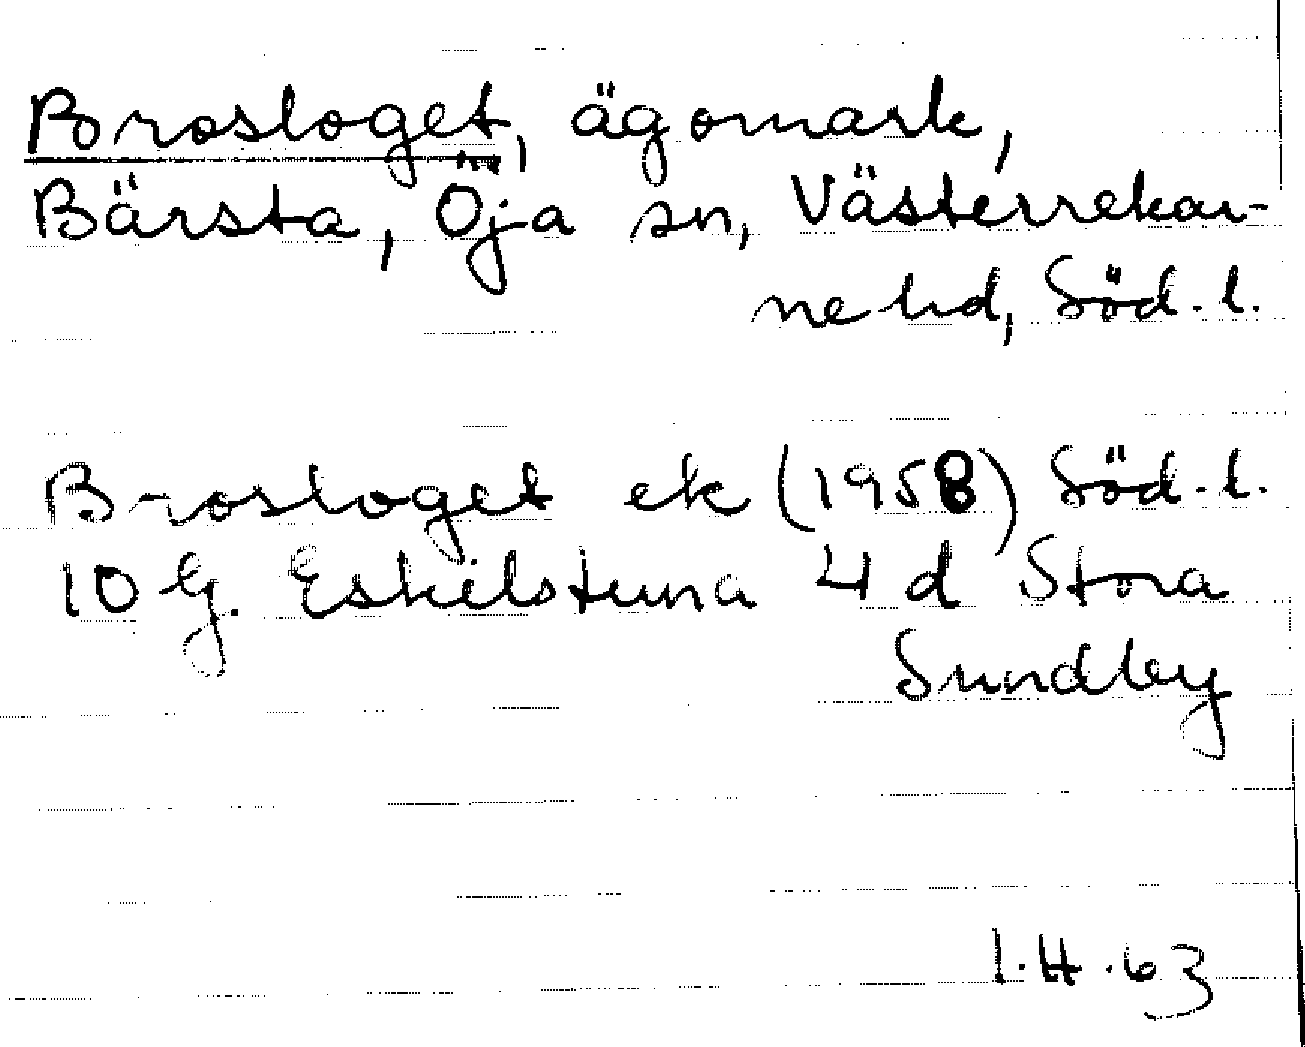 Brosloget, ägomark,
Bärsta, Öja sn, Västerrekar-
ne hd, Söd. l.
Brosloget ek (1958) Söd. l.
10 G. Eskilstuna 4 d Stora
Sundby
I. H. 63